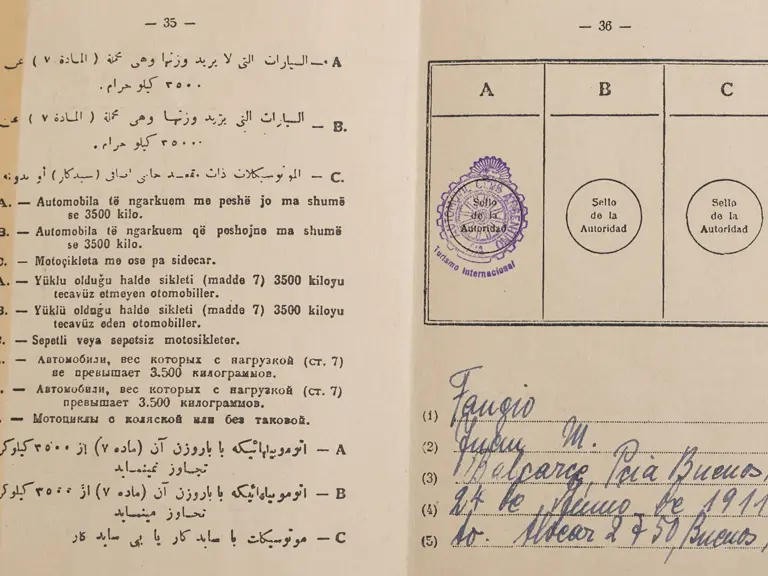 — 35 —
A — السيارات التى لا يزيد وزنها وهى محملة ( المادة ٧ ) عن
٣٥٠٠ كيلو جرام .
B. — السيارات التى يزيد وزنها وهى محملة ( المادة ٧ ) عن
٣٥٠٠ كيلو جرام .
C. — الموتوسيكلات ذات مقعد جانبى اضافى (سيدكار) أو بدونه
A. — Automobila të ngarkuem me peshë jo ma shumë
se 3500 kilo.
B. — Automobila të ngarkuem që peshojnë ma shumë
se 3500 kilo.
C. — Motoçikleta me ose pa sidecar.
A. — Yüklu olduğu halde sikleti (madde 7) 3500 kiloyu
tecavüz etmeyen otomobiller.
B. — Yüklü olduğu halde sikleti (madde 7) 3500 kiloyu
tecavüz eden otomobiller.
C. — Sepetli veya sepetsiz motosikleter.
— Автомобили, вес которых с нагрузкой (ст. 7)
не превышает 3.500 килограммов.
— Автомобили, вес которых с нагрузкой (ст. 7)
превышает 3.500 килограммов.
— Мотоциклы с коляской или без таковой.
A — اتوموبيلهائيكه با باروزن آن (ماده ٧) از ٣٥٠٠ كيلوگر
تجاوز نمينمايد
B — اتوموبيلهائيكه با باروزن آن (ماده ٧) از ٣٥٠٠ كيلوگر
تجاوز مينمايد
C — موتوسيكلت با سايد كار يا بى سايد كار
— 36 —
A B C
AUTOMOVIL CLUB ARGENTINO
Sello
de la
Autoridad
Turismo Internacional
Sello
de la
Autoridad
Sello
de la
Autoridad
(1) Fangio
(2) Juan M.
(3) Balcarce, Pcia Buenos
(4) 24 de Junio de 1911
(5) 2750, Buenos